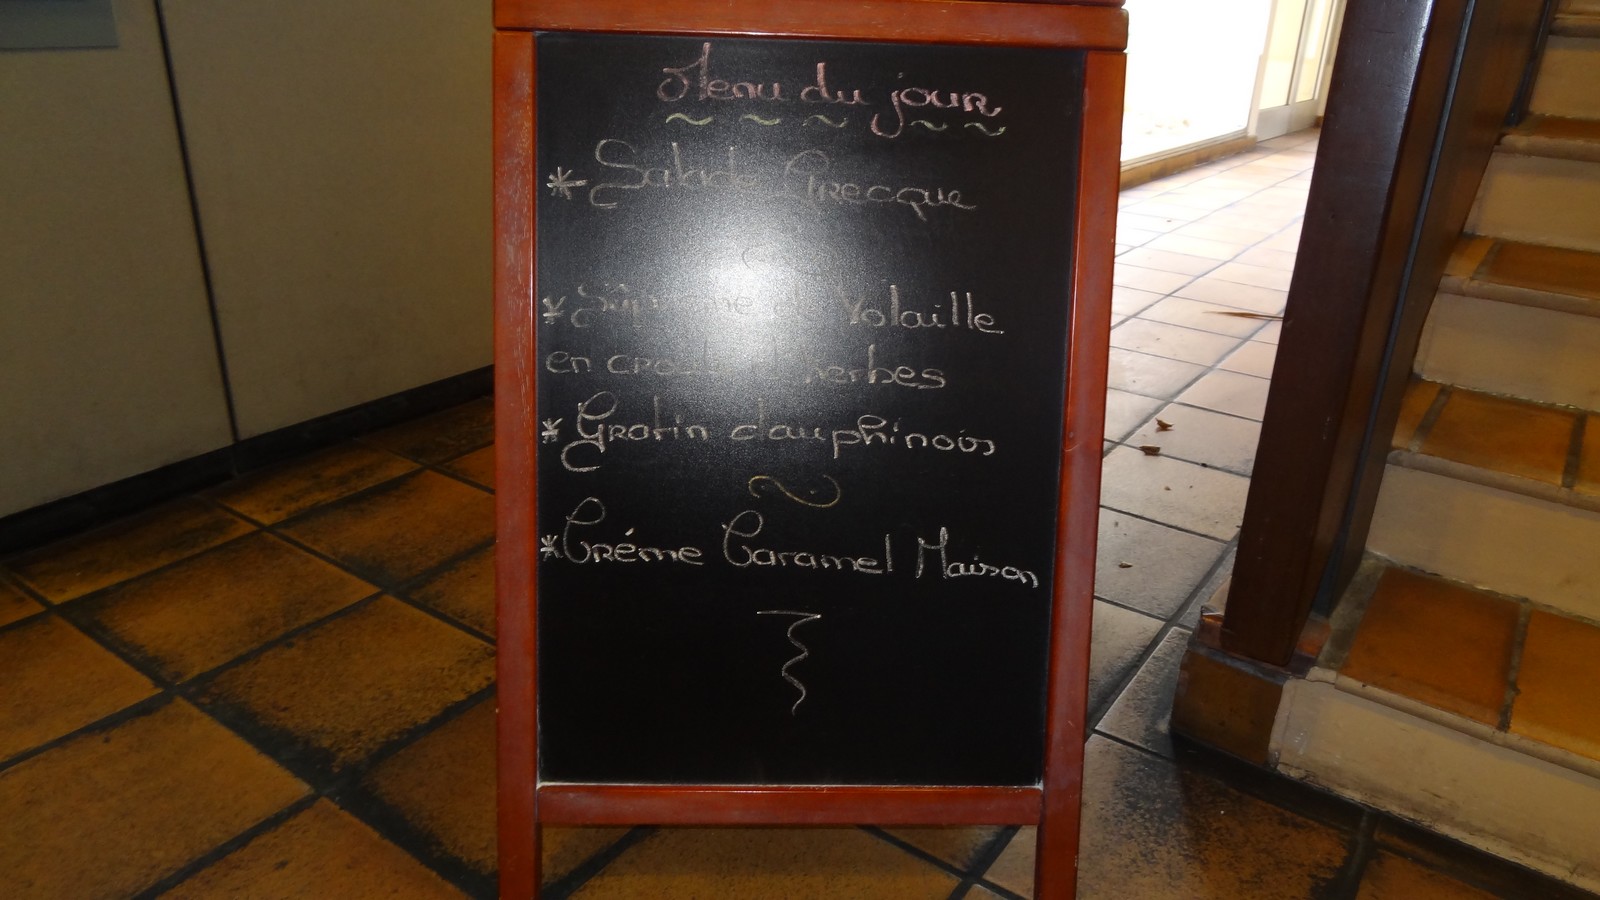 Menu du jour
* Salade Grecque
* Suprême de Volaille
en croute d'herbes
* Gratin dauphinois
* Créme Caramel Maison